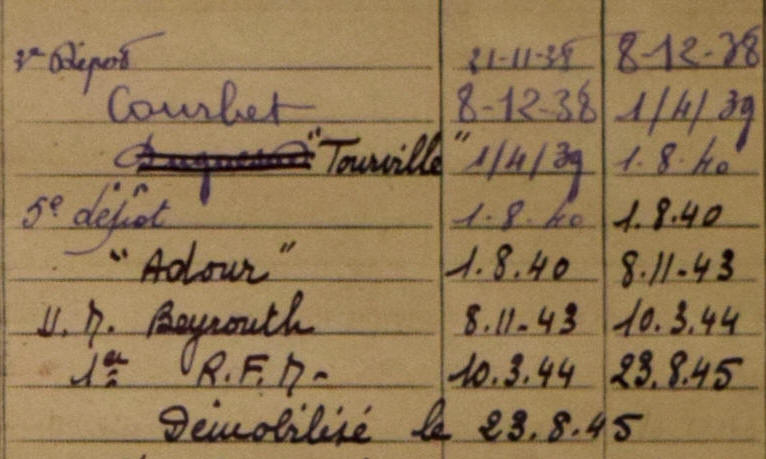 3e Dépôt 21-11-38 8-12-38
Courbet 8-12-38 1/4/39
"Tourville" 1/4/39 1.8.40
5e dépôt 1.8.40 1.8.40
"Adour" 1.8.40 8.11-43
U.M. Beyrouth 8.11-43 10.3.44
1er R.F.M- 10.3.44 23.8.45
Démobilisé le 23.8.45